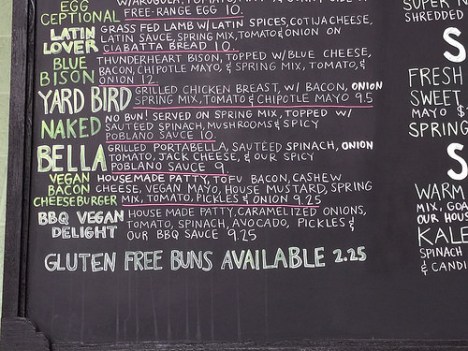 EGG CEPTIONAL
FREE-RANGE EGG 10
LATIN LOVER
GRASS FED LAMB W/LATIN SPICES, COTIJA CHEESE,
LATIN SAUCE, SPRING MIX, TOMATO & ONION ON
CIABATTA BREAD 10.
BLUE BISON
THUNDERHEART BISON, TOPPED W/ BLUE CHEESE,
BACON, CHIPOTLE MAYO, & SPRING MIX, TOMATO, &
ONION 12
YARD BIRD
GRILLED CHICKEN BREAST, W/ BACON, ONION
SPRING MIX, TOMATO & CHIPOTLE MAYO 9.5
NAKED
NO BUN! SERVED ON SPRING MIX, TOPPED W/
SAUTÉED SPINACH, MUSHROOMS & SPICY
POBLANO SAUCE 10.
BELLA
GRILLED PORTABELLA, SAUTÉED SPINACH, ONION
TOMATO, JACK CHEESE, & OUR SPICY
POBLANO SAUCE 9
VEGAN BACON CHEESEBURGER
HOUSEMADE PATTY, TOFU BACON, CASHEW
CHEESE, VEGAN MAYO, HOUSE MUSTARD, SPRING
MIX, TOMATO, PICKLES & ONION 9.25
BBQ VEGAN DELIGHT
HOUSE MADE PATTY, CARAMELIZED ONIONS,
TOMATO, SPINACH, AVOCADO, PICKLES &
OUR BBQ SAUCE 9.25
GLUTEN FREE BUNS AVAILABLE 2.25
SHREDDED
S
FRESH
SWEET
MAYO $
SPRING
S
WARM
MIX, GOA
OUR HOUS
KALE
SPINACH
& CANDI